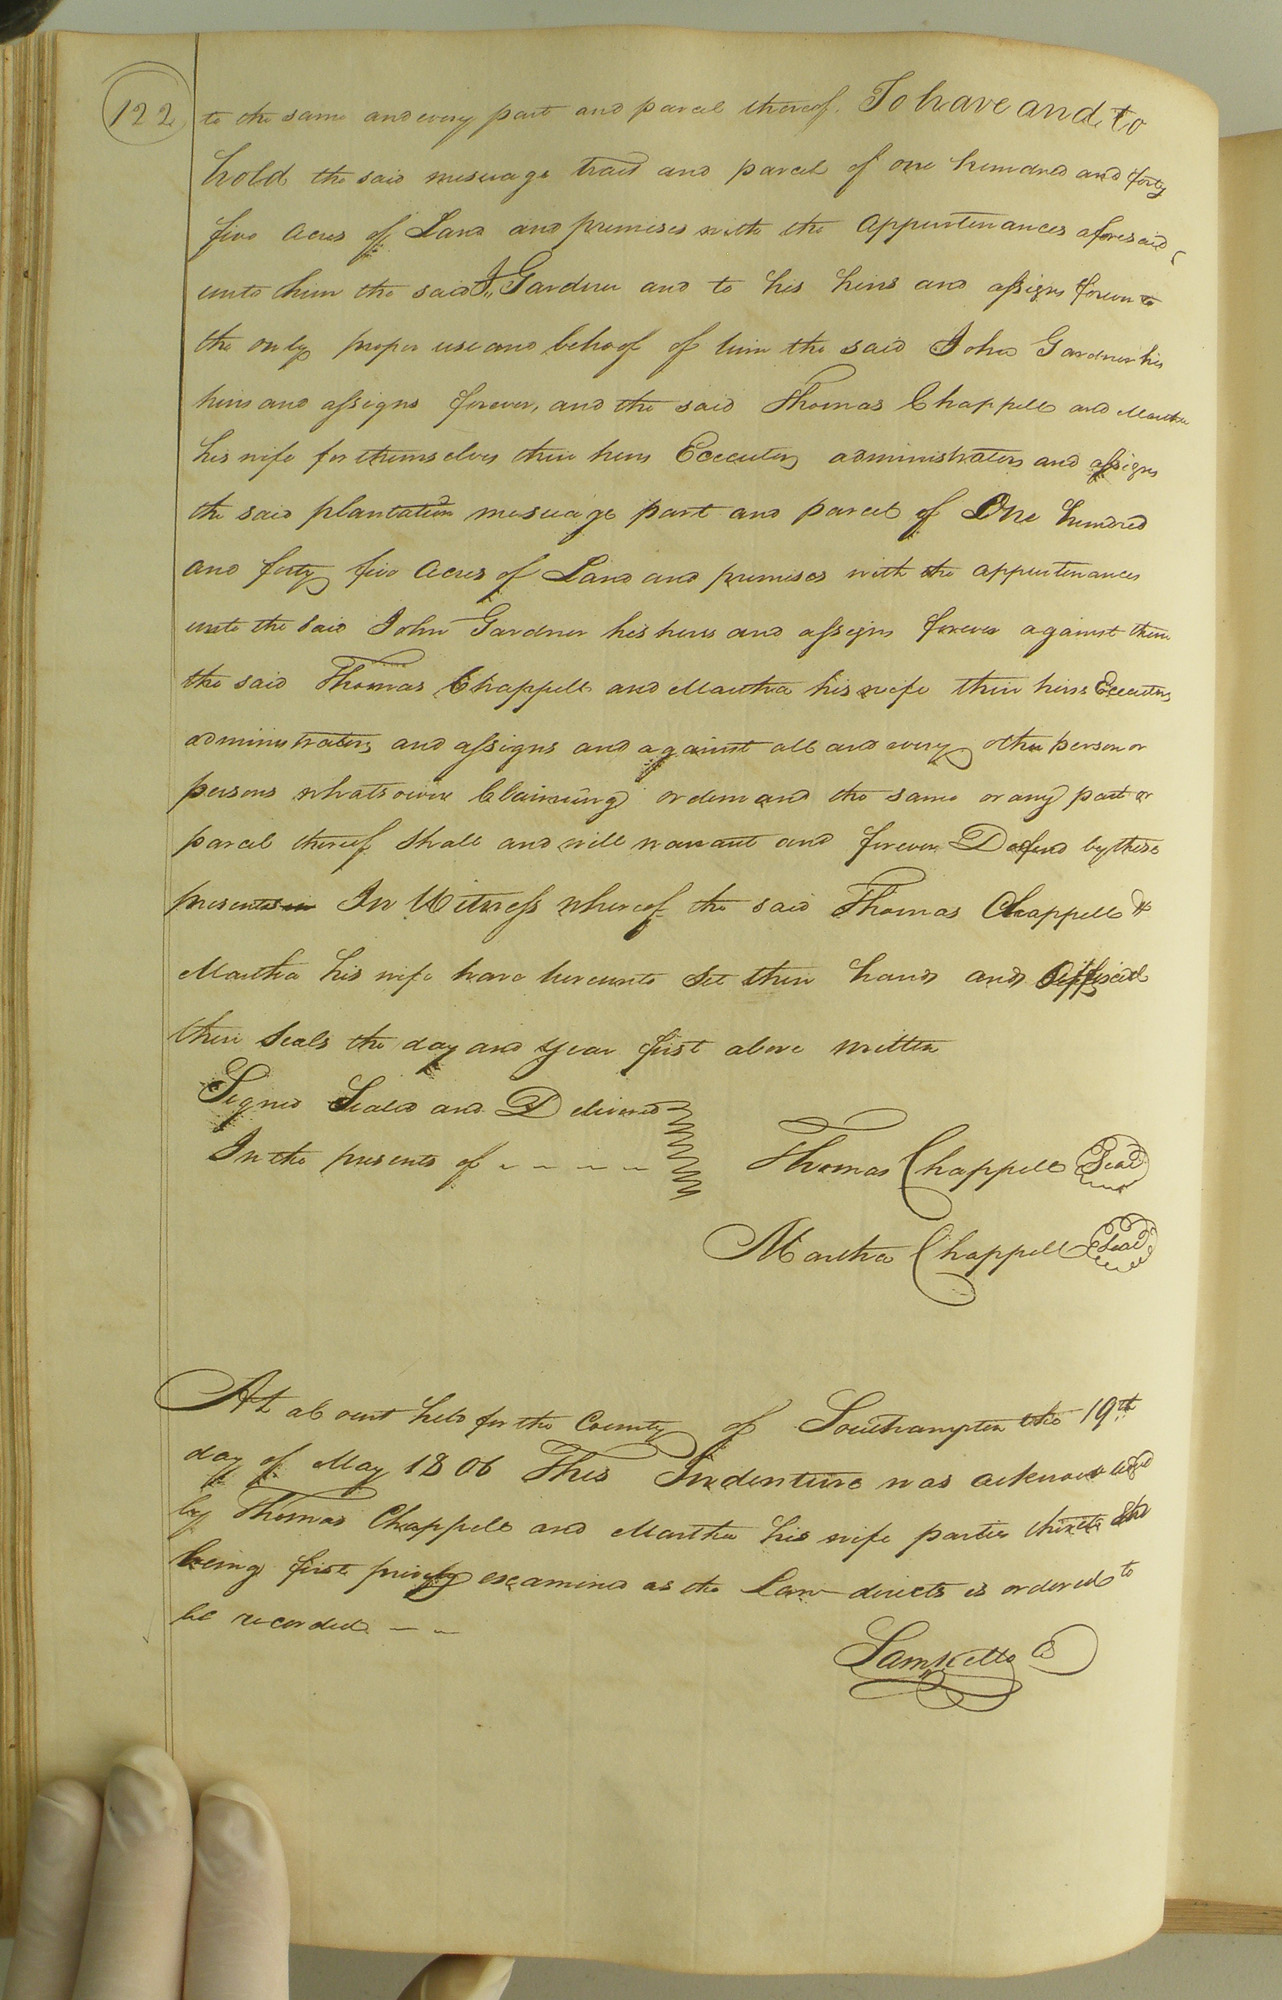 122
to the same and every part and parcel thereof. To have and to
hold the said messuage tract and parcel of one hundred and forty
five acres of Land and premises with the appurtenances aforesaid
unto him the said J. Gardner and to his heirs and assigns forever to
the only proper use and behoof of him the said John Gardner his
heirs and assigns forever, and the said Thomas Chappell and Martha
his wife for themselves their heirs Executors administrators and assigns
the said plantation messuage part and parcel of One hundred
and forty five Acres of Land and premises with the appurtenances
unto the said John Gardner his heirs and assigns forever against them
the said Thomas Chappell and Martha his wife their heirs Executors
administrators and assigns and against all and every other person or
persons whatsoever Claiming or demand the same or any part or
parcel thereof shall and will warrant and forever Defend by these
presents In Witness whereof the said Thomas Chappell &
Martha his wife have hereunto Set their hands and Affixed
their Seals the day and year first above written
Signed Sealed and Delivered
In the presents of - - - - -
Thomas Chappell Seal
Martha Chappell Seal
At a Court held for the County of Southampton the 19th
day of May 1806 This Indenture was acknowledged
by Thomas Chappell and Martha his wife parties thereto She
being first privily examined as the Law directs is ordered to
be recorded - -
Saml Kello C